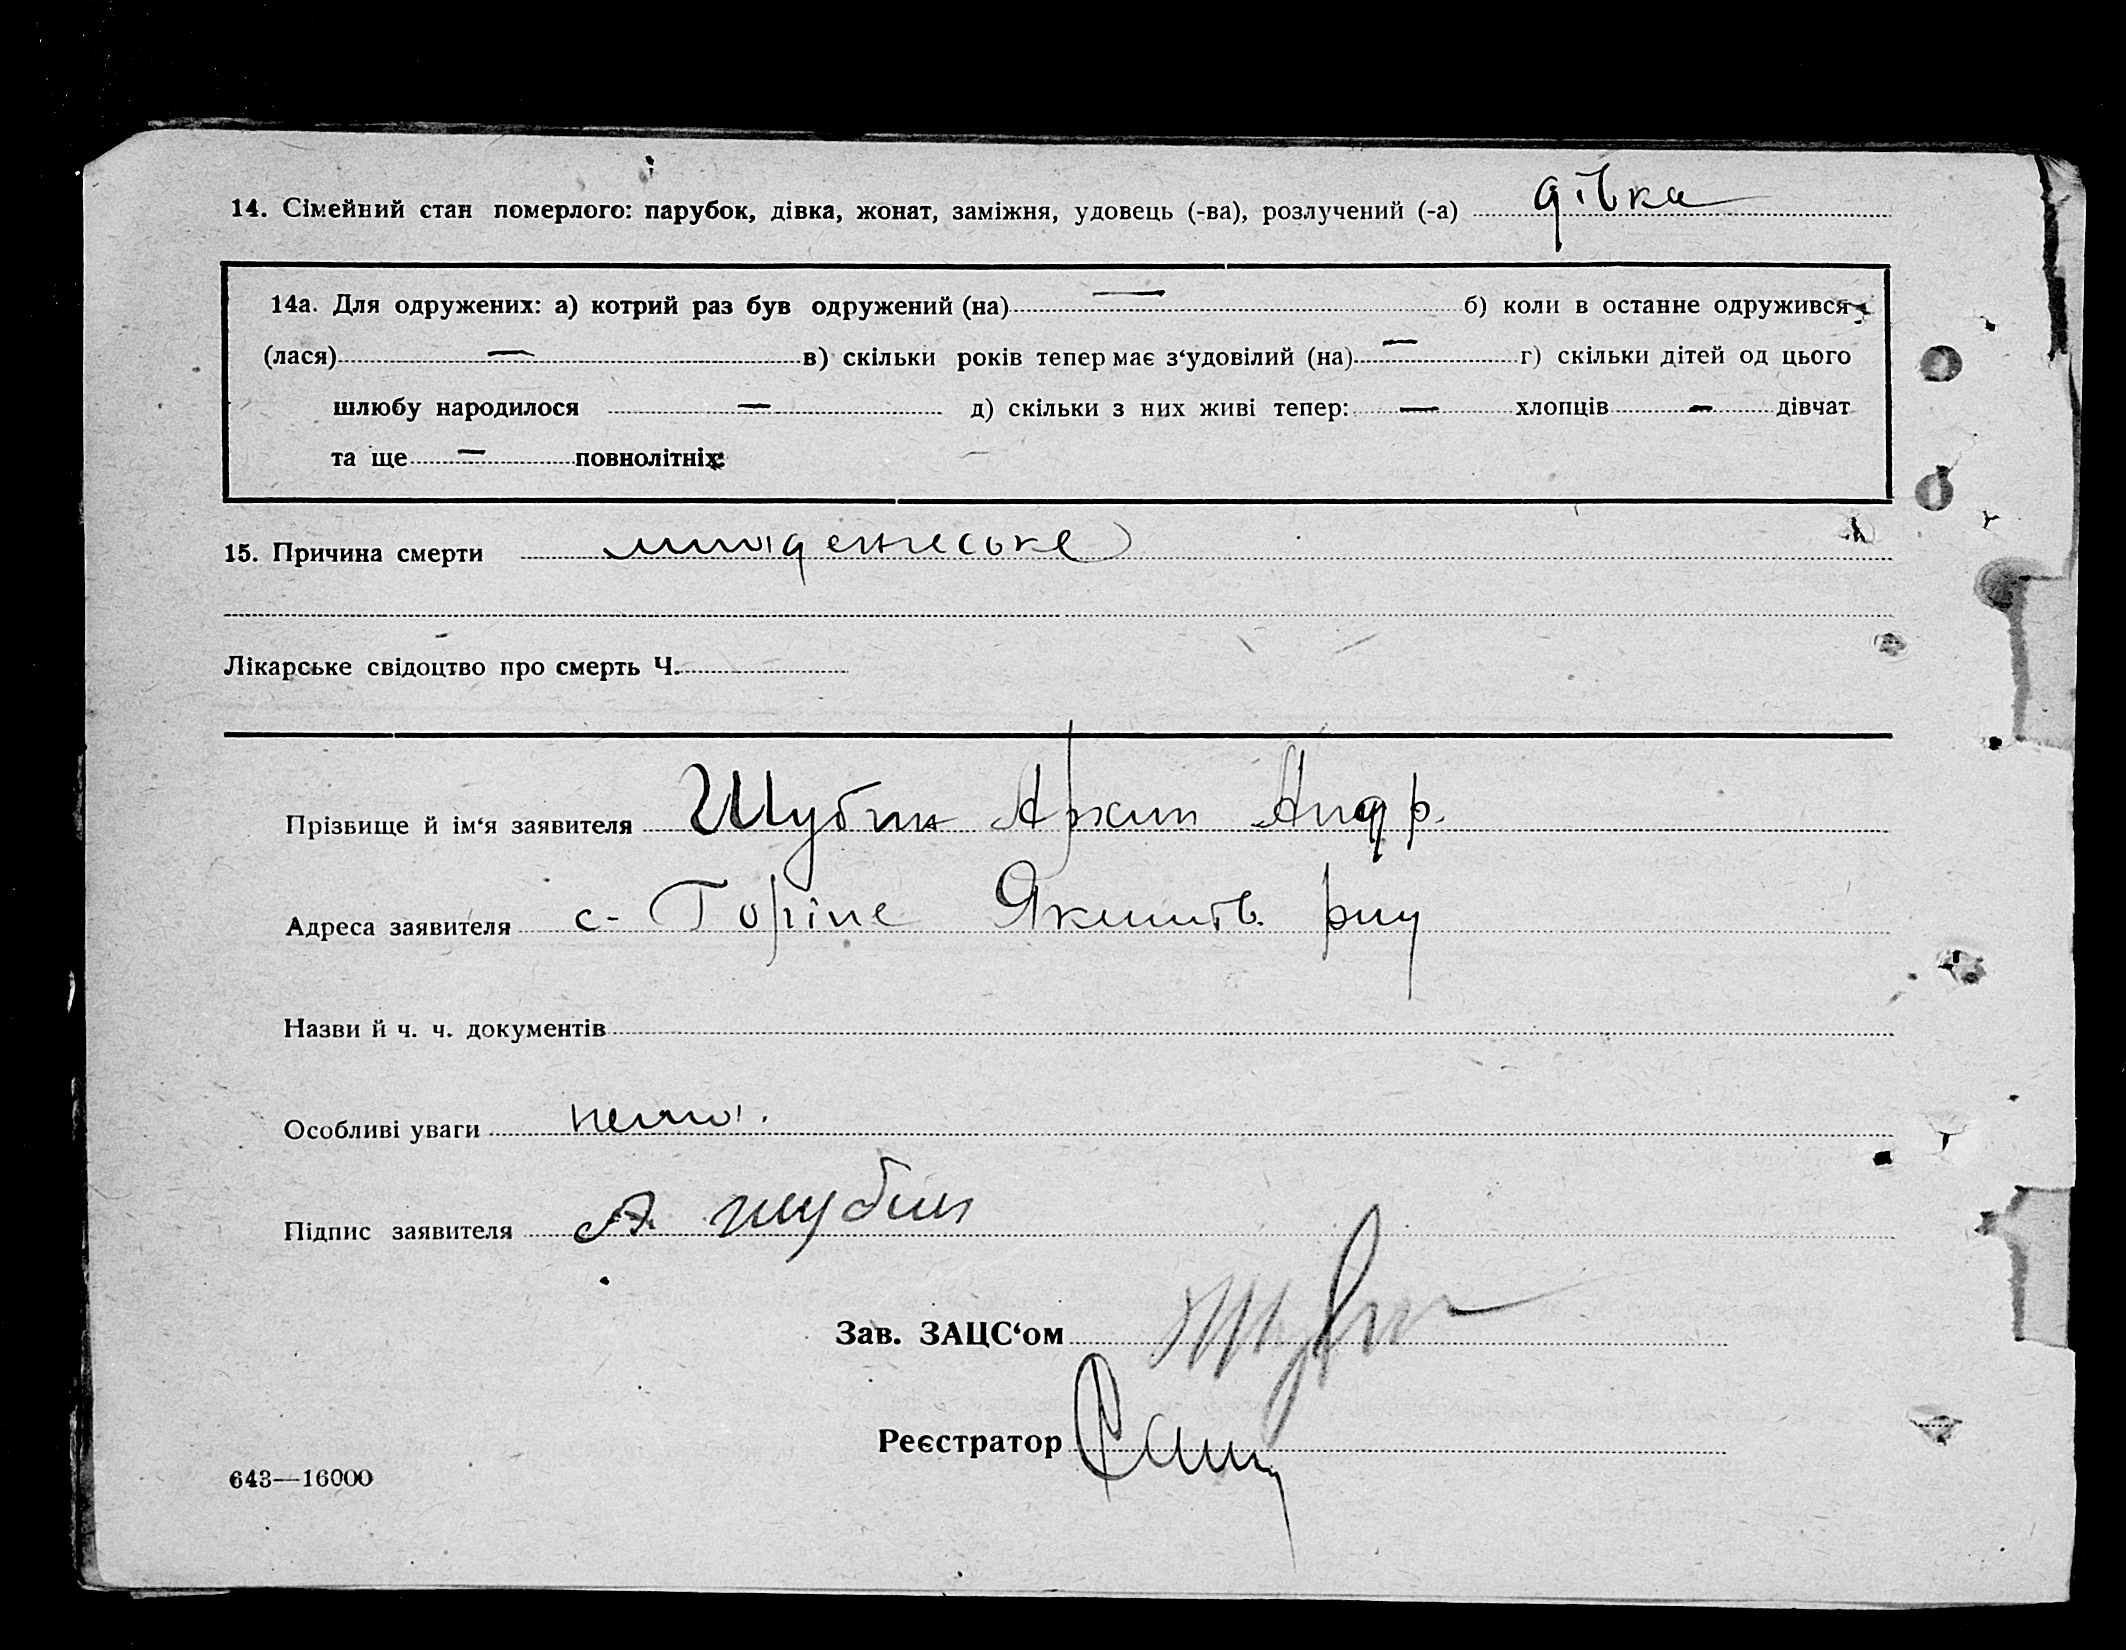 14. Сімейний стан померлого: парубок, дівка, жонат, заміжня, удовець (-ва), розлучений (-а) дівка
14а. Для одружених: а) котрий раз був одружений (на) — б) коли в останне одружився
(лася) — в) скільки років тепер має з‘удовілий (на) — г) скільки дітей од цього
шлюбу народилося — д) скільки з них живі тепер: — хлопців — дівчат
та ще — повнолітніх:
15. Причина смерти
Лікарське свідоцтво про смерть Ч.
Прізвище й ім‘я заявителя Шубин Архип Андр.
Адреса заявителя с-Горіле Якимів.
Назви й ч. ч. документів
Особливі уваги нема.
Підпис заявителя А Шубин
Зав. ЗАЦС‘ом
Реєстратор
643—16000